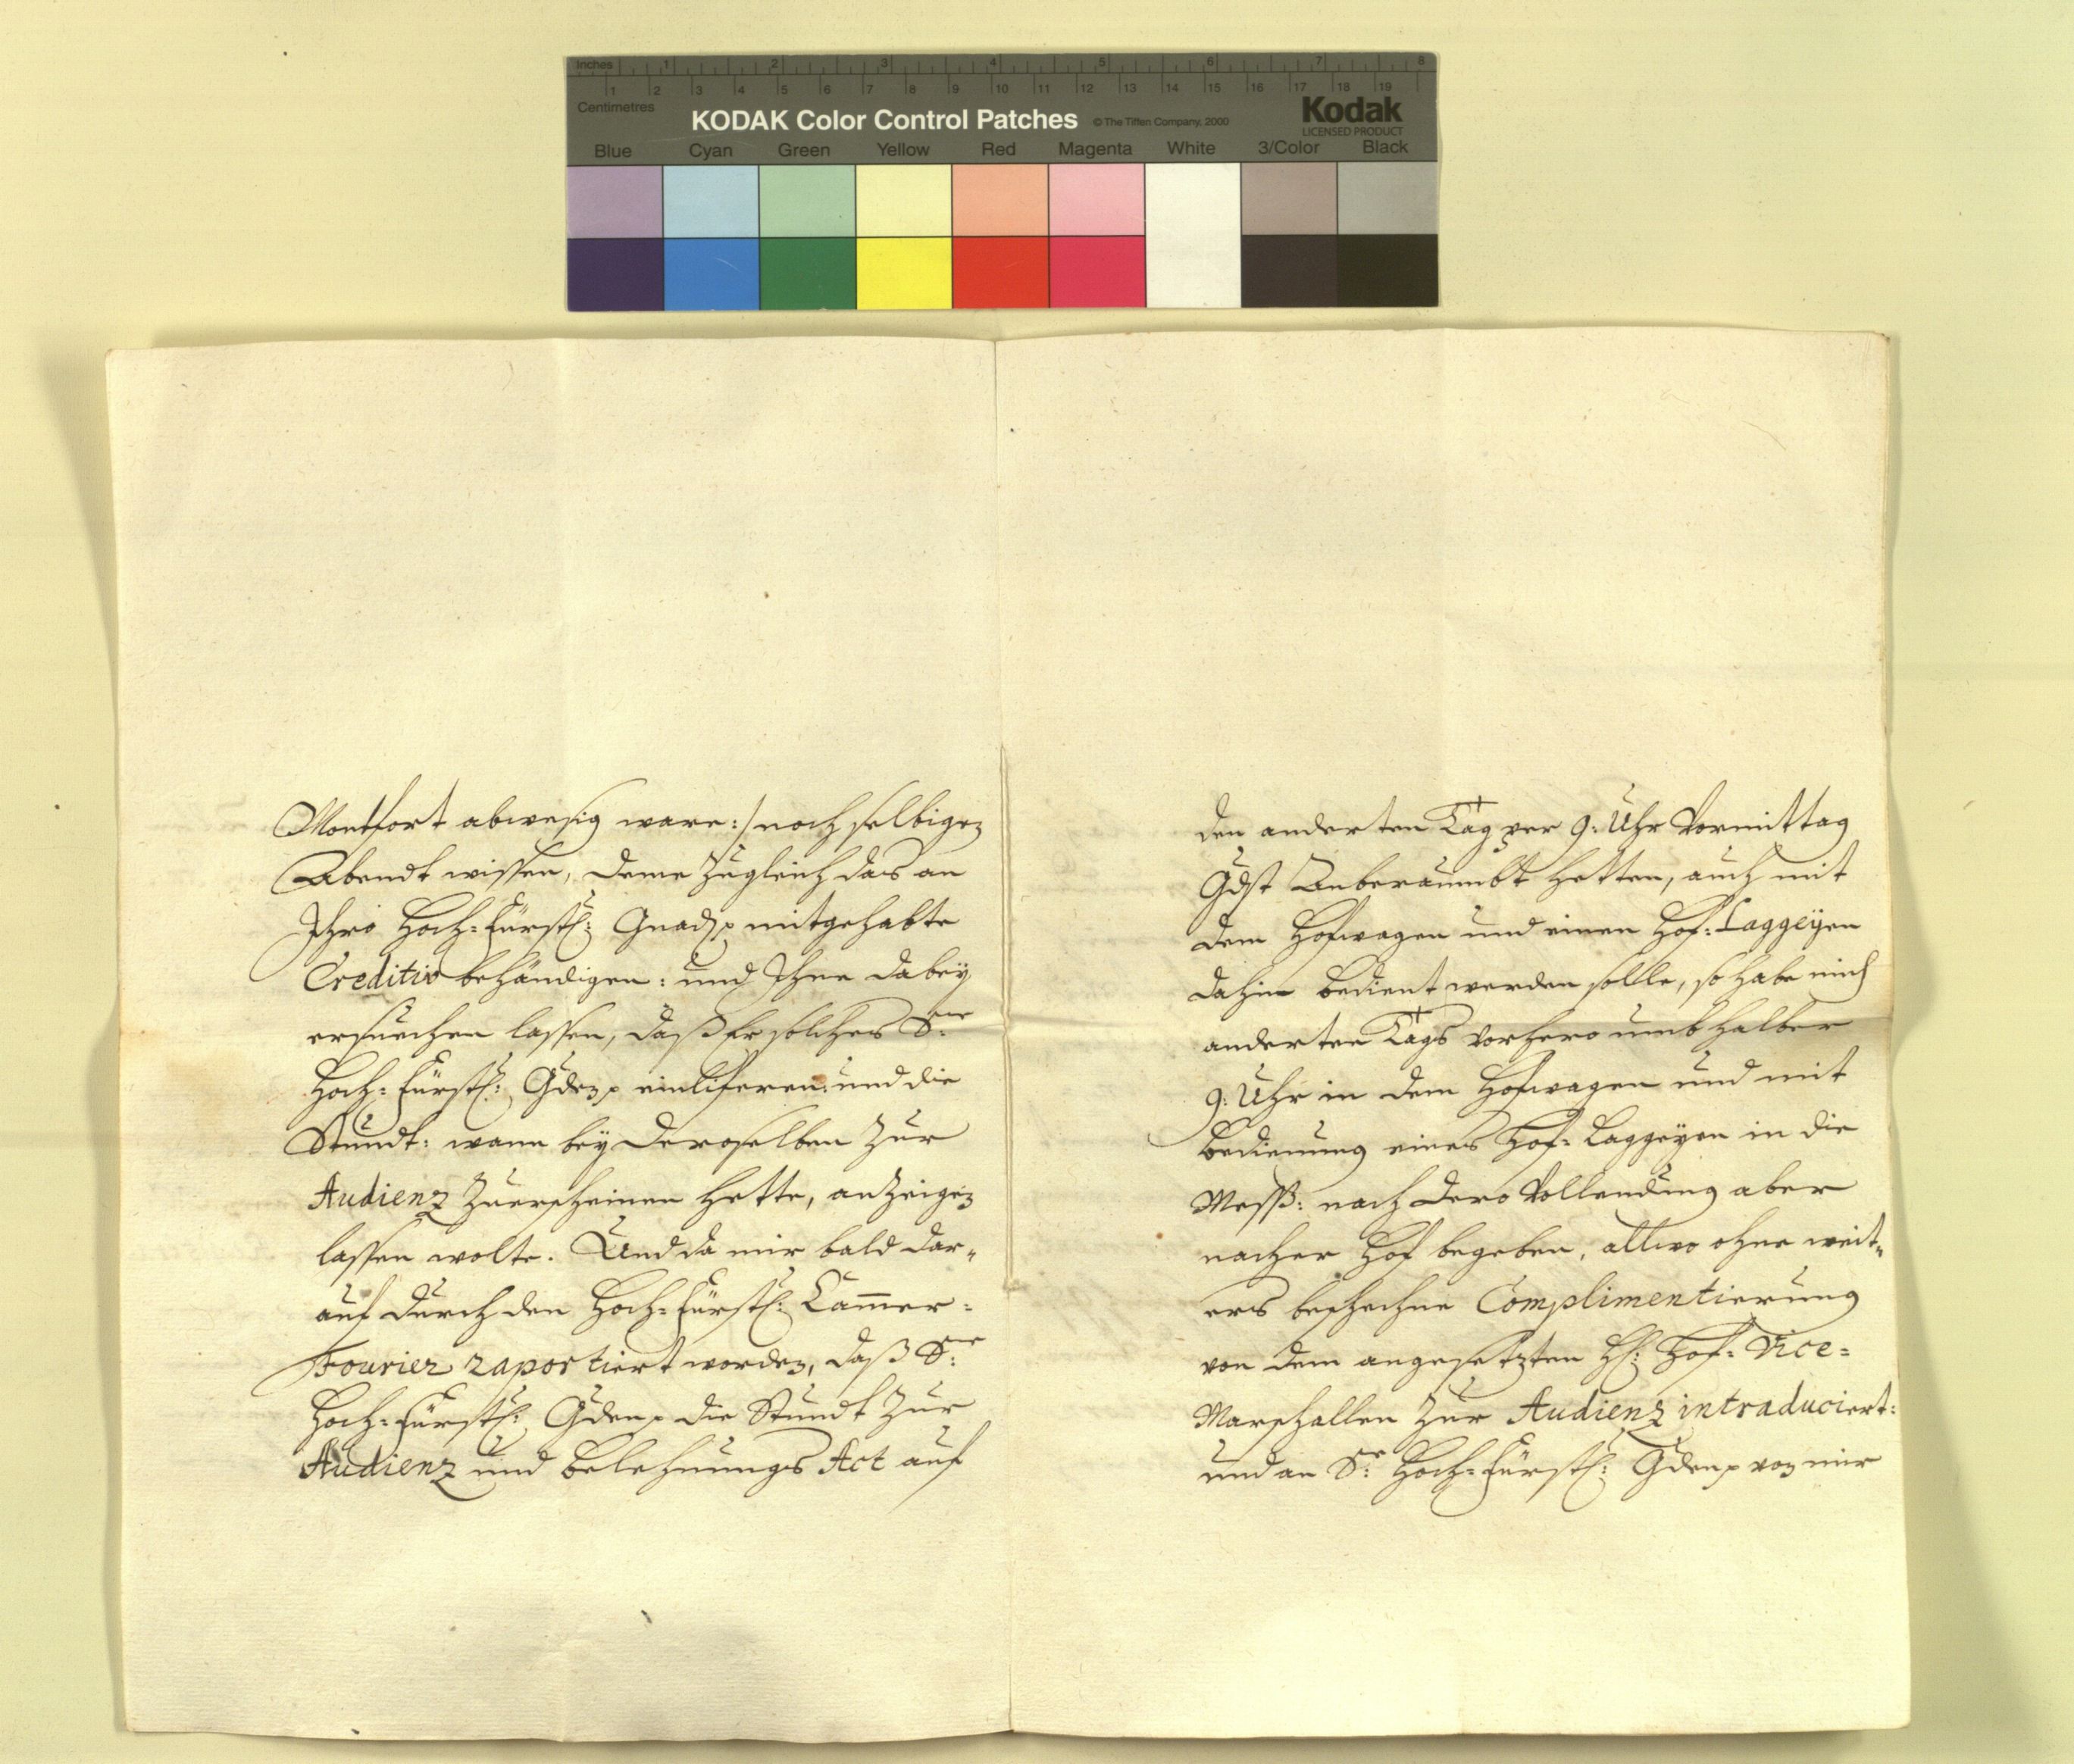 Inches 1 2 3 4 5 6 7 8
1 2 3 4 5 6 7 8 9 10 11 12 13 14 15 16 17 18 19
Centimetres
KODAK Color Control Patches © The Tiffen Company, 2000 Kodak
LICENSED PRODUCT
Blue Cyan Green Yellow Red Magenta White 3/Color Black
Montfort abwesig ware:/ noch selbigen
Abendt wissen, deme Zugleich das an
Ihro Hoch-Fürstl: Gnad. mitgehabte
Creditiv behändigen: und Ihne dabey
ersuechen lassen, daß Er solches Sr.
Hoch-Fürstl: Gden. einliferen: und die
Stundt: wann bey Deroselben Zur
Audienz Zuerscheinen hette, anzeigen
lassen wolte. Und da mir bald dar„
auf durch den Hoch-Fürstl: Cammer-
Fourier raportiert worden, daß Sr.
Hoch-Fürstl: Gden. die Stundt Zur
Audienz und Belehnungs Act auf
den anderten Tag per 9: Uhr Vormittag
Gdst Anberaumbt hetten, auch mit
dem Hofwagen und einen Hof-Laggeyen
dahin bedient werden solle, so habe mich
anderten Tags vorhero umb halber
9: Uhr in dem Hofwagen und mit
Bedienung eines Hof-Laggeyen in die
Mess: nach dero Vollendung aber
nacher Hof begeben, allwo ohne weit„
ers beschechne Complimentierung
von dem angesetzten H: Hof-Vice-
Marschallen Zur Audienz intraduciert:
und an Sr. Hoch-Fürstl: Gden. von mir